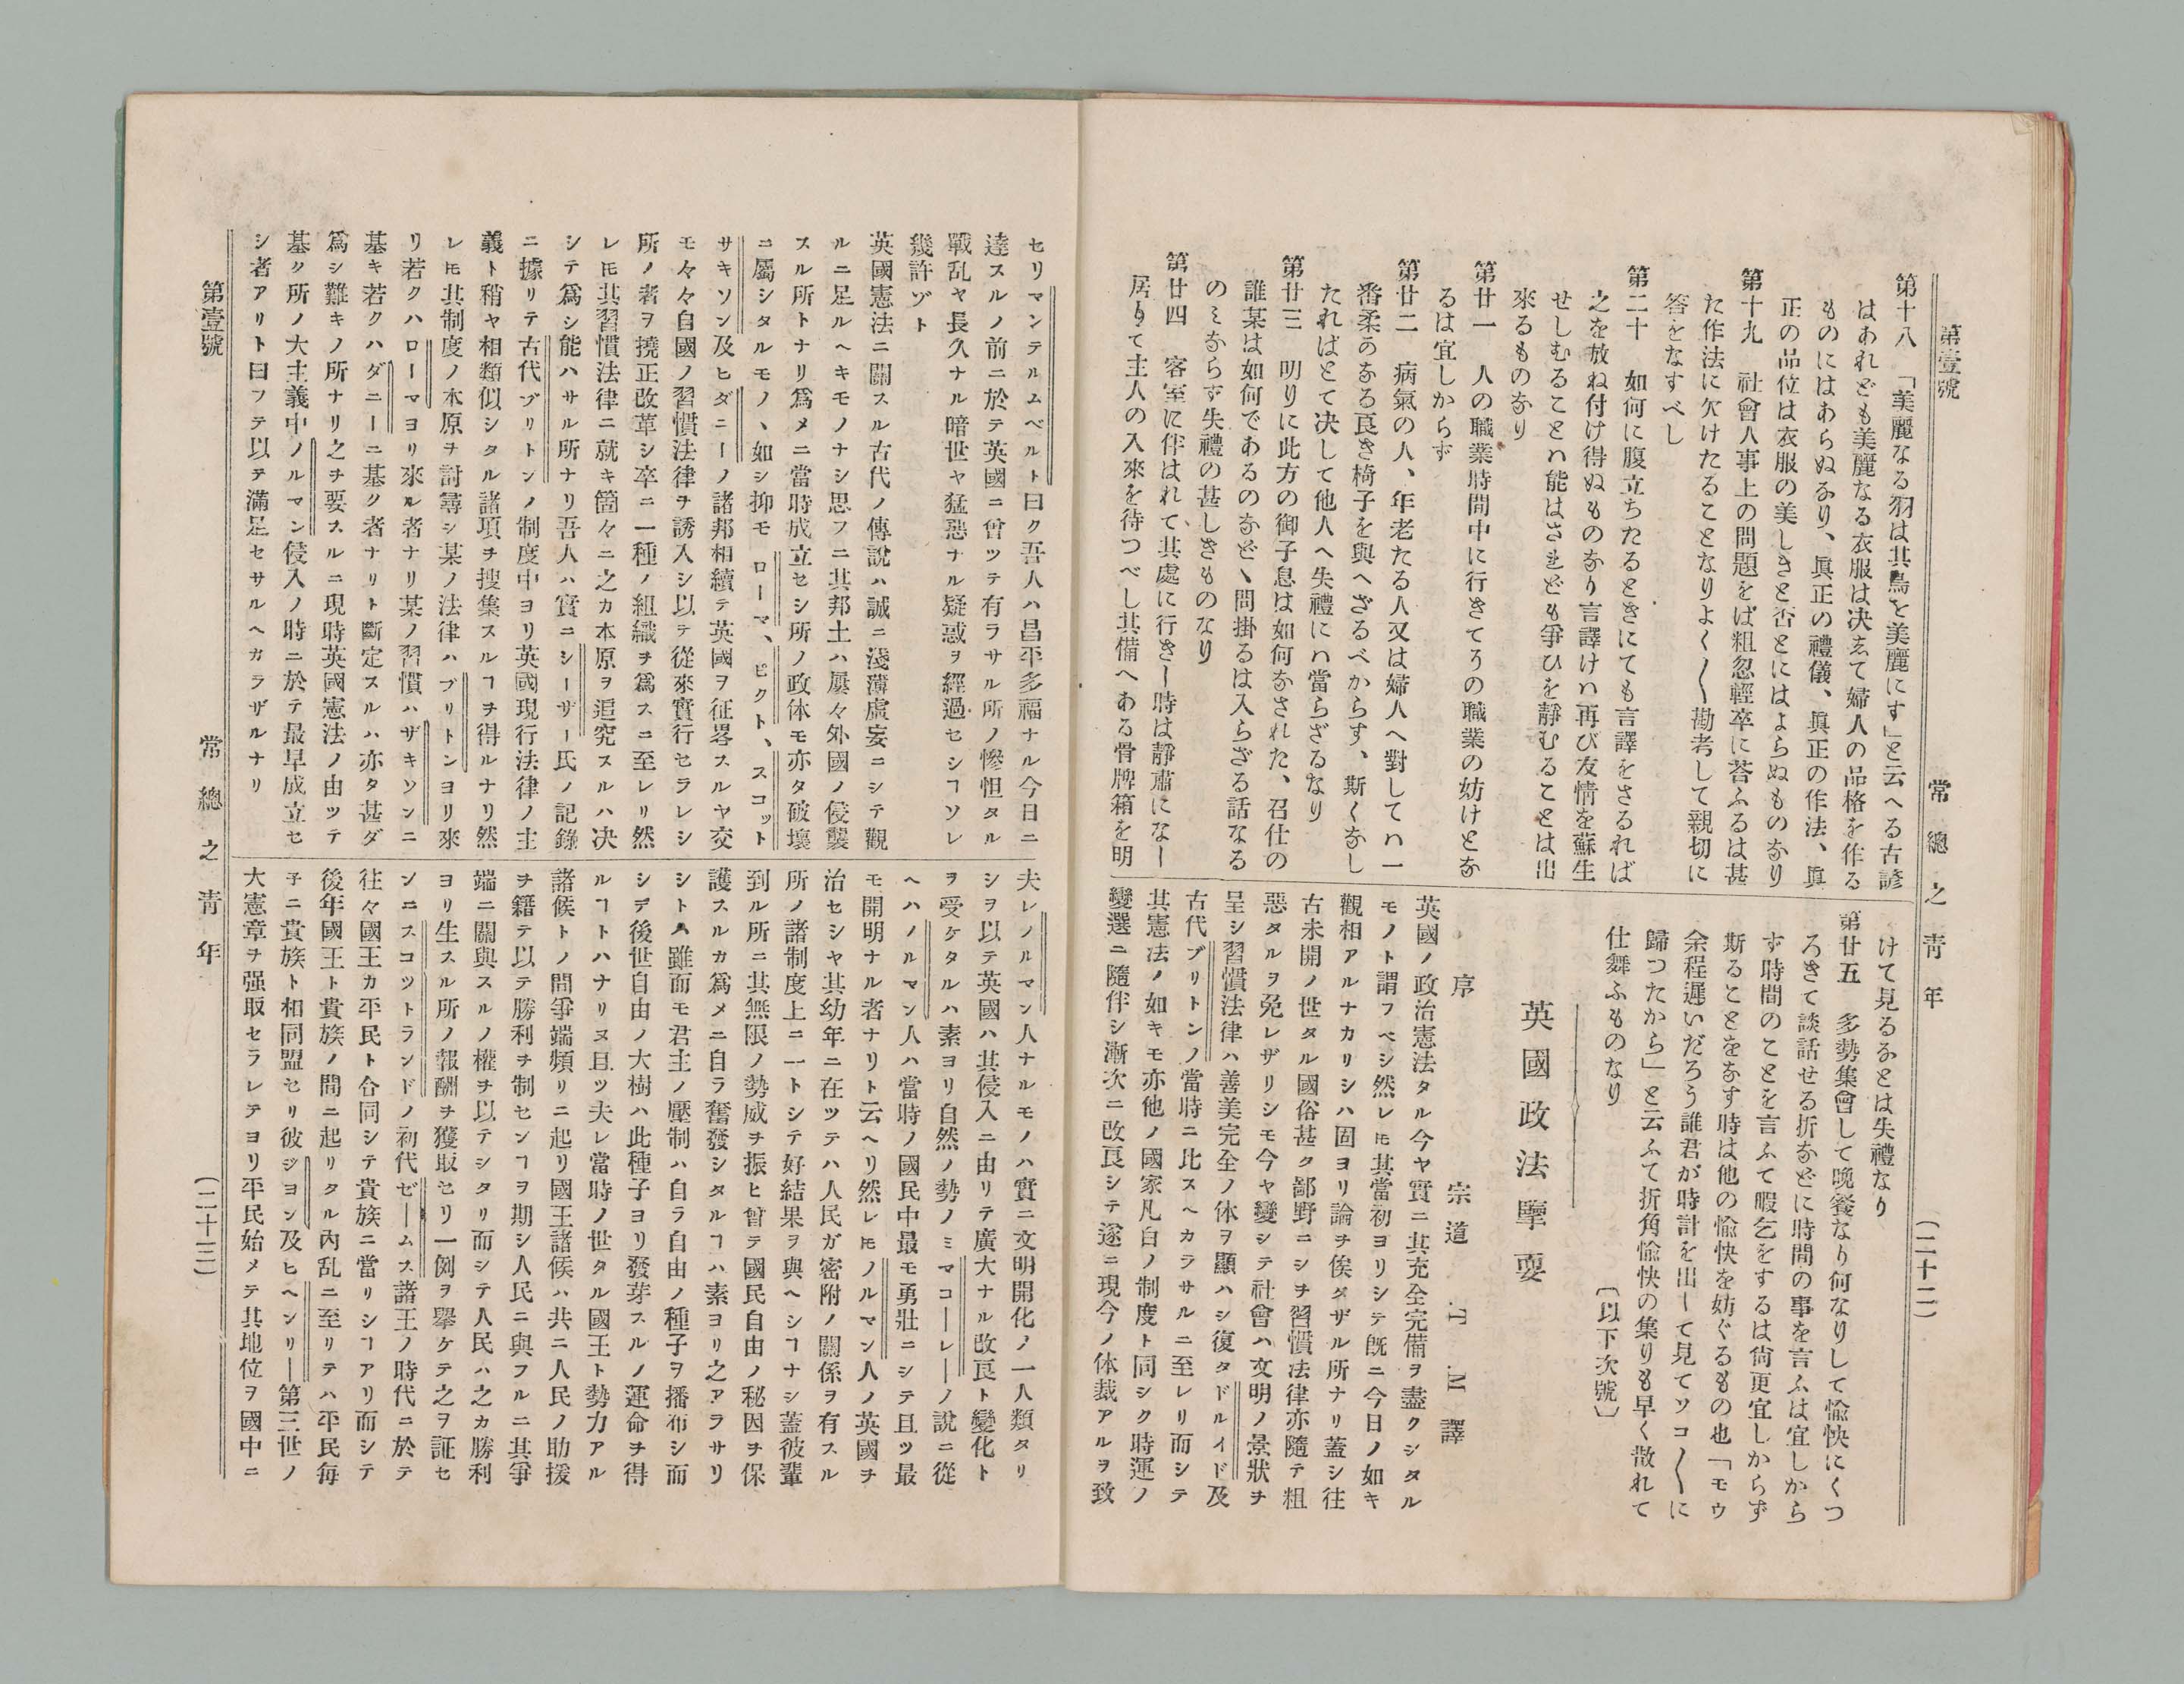 第壹號
常總之靑年
(二十二)
第十八　「美麗なる羽は其鳥を美麗にす」と云へる古諺
はあれども美麗なる衣服は决ゑて婦人の品格を作る
ものにはあらぬなり、眞正の禮儀、眞正の作法、眞
正の品位は衣服の美しきと否とにはよらぬものなり
第十九　社會人事上の問題をば粗忽輕卒に荅ふるは甚
た作法に欠けたることなりよく〱勘考して親切に
答をなすべし
第二十　如何に腹立ちたるときにても言譯をさるれば
之を放ね付け得ぬものなり言譯けハ再び友情を蘇生
せしむることハ能はされども爭ひを靜むることは出
來るものなり
第廿一　人の職業時間中に行きてその職業の妨けとな
るは宜しからず
第廿二　病氣の人、年老たる人又は婦人へ對してハ一
番柔のなる良き椅子を與へざるべからす、斯くなし
たればとて决して他人へ失禮にハ當らざるなり
第廿三　明りに此方の御子息は如何なされた、召仕の
誰某は如何であるのなどゝ問掛るは入らざる話なる
のミならず失禮の甚しきものなり
第廿四　客室に伴はれて其處に行きし時は靜肅になし
居りて主人の入來を待つべし其備へある骨牌箱を明
けて見るなとは失禮なり
第廿五　多勢集會して晩餐なり何なりして愉快にくつ
ろきて談話せる折などに時間の事を言ふは宜しから
ず時間のことを言ふて暇乞をするは尙更宜しからず
斯ることをなす時は他の愉快を妨ぐるもの也「モウ
余程遲いだろう誰君が時計を出して見てソコ〱に
歸つたから」と云ふて折角愉快の集りも早く散れて
仕舞ふものなり　〔以下次號〕
英國政法擥要
宗道　T　M　譯
序
英國ノ政治憲法タル今ヤ實ニ其充全完備ヲ盡クシタル
モノト謂フベシ然レ𪜈其當初ヨリシテ旣ニ今日ノ如キ
觀相アルナカリシハ固ヨリ論ヲ俟タザル所ナリ蓋シ往
古未開ノ世タル國俗甚ク鄙野ニシヲ習慣法律亦隨テ粗
惡タルヲ免レザリシモ今ヤ變シテ社會ハ文明ノ景狀ヲ
呈シ習慣法律ハ善美完全ノ体ヲ顯ハシ復タドルイド及
古代ブリトンノ當時ニ比スヘカラサルニ至レリ而シテ
其憲法ノ如キモ亦他ノ國家凡百ノ制度ト同シク時運ノ
變選ニ隨伴シ漸次ニ改良シテ遂ニ現今ノ体裁アルヲ致
セリマンテルムベルト曰ク吾人ハ昌平多福ナル今日ニ
達スルノ前ニ於テ英國ニ曾ツテ有ラサル所ノ慘怛タル
戰乱ヤ長久ナル暗世ヤ猛惡ナル疑惑ヲ經過セシヿソレ
幾許ゾト
英國憲法ニ關スル古代ノ傳說ハ誠ニ淺薄虛妄ニシテ觀
ルニ足ルヘキモノナシ思フニ其邦土ハ屢々外國ノ侵襲
スル所トナリ爲メニ當時成立セシ所ノ政体モ亦タ破壞
ニ屬シタルモノヽ如シ抑モローマ、ピクト、スコット
サキソン及ヒダニーノ諸邦相續テ英國ヲ征畧スルヤ交
モ々々自國ノ習慣法律ヲ誘入シ以テ從來實行セラレシ
所ノ者ヲ撓正改革シ卒ニ一種ノ組織ヲ爲スニ至レリ然
レ𪜈其習慣法律ニ就キ箇々ニ之カ本原ヲ追究スルハ决
シテ爲シ能ハサル所ナリ吾人ハ實ニシーザー氏ノ記錄
ニ據リテ古代ブリトンノ制度中ヨリ英國現行法律ノ主
義ト稍ヤ相類似シタル諸項ヲ捜集スルヿヲ得ルナリ然
レ𪜈其制度ノ本原ヲ討尋シ某ノ法律ハブリトンヨリ來
リ若クハローマヨリ來ル者ナリ某ノ習慣ハザキソンニ
基キ若クハダニーニ基ク者ナリト斷定スルハ亦タ甚ダ
爲シ難キノ所ナリ之ヲ要スルニ現時英國憲法ノ由ツテ
基ク所ノ大主義中ノルマン侵入ノ時ニ於テ最早成立セ
シ者アリト曰フテ以テ滿足セサルヘカラザルナリ
夫レノルマン人ナルモノハ實ニ文明開化ノ一人類タリ
シヲ以テ英國ハ其侵入ニ由リテ廣大ナル改良ト變化ト
ヲ受ケタルハ素ヨリ自然ノ勢ノミマコーレーノ說ニ從
ヘハノルマン人ハ當時ノ國民中最モ勇壯ニシテ且ツ最
モ開明ナル者ナリト云ヘリ然レ𪜈ノルマン人ノ英國ヲ
治セシヤ其幼年ニ在ツテハ人民ガ密附ノ關係ヲ有スル
所ノ諸制度上ニ一トシテ好結果ヲ與ヘシヿナシ蓋彼輩
到ル所ニ其無限ノ勢威ヲ振ヒ曾テ國民自由ノ秘因ヲ保
護スルカ爲メニ自ラ奮發シタルヿハ素ヨリ之アラサリ
シト雖而モ君主ノ壓制ハ自ラ自由ノ種子ヲ播布シ而
シデ後世自由ノ大樹ハ此種子ヨリ發芽スルノ運命ヲ得
ルヿトハナリヌ且ツ夫レ當時ノ世タル國王ト勢力アル
諸候トノ間爭端頻リニ起リ國王諸候ハ共ニ人民ノ助援
ヲ籍テ以テ勝利ヲ制センヿヲ期シ人民ニ與フルニ其爭
端ニ關與スルノ權ヲ以テシタリ而シテ人民ハ之カ勝利
ヨリ生スル所ノ報酬ヲ獲取セリ一例ヲ擧ケテ之ヲ証セ
ンニスコツトランドノ初代ゼームス諸王ノ時代ニ於テ
往々國王カ平民ト合同シテ貴族ニ當リシヿアリ而シテ
後年國王ト貴族ノ間ニ起リタル內乱ニ至リテハ平民每
子ニ貴族ト相同盟セリ彼ジヨン及ヒヘンリー第三世ノ
大憲章ヲ强取セラレテヨリ平民始メテ其地位ヲ國中ニ
第壹號
常總之靑年
(二十三)